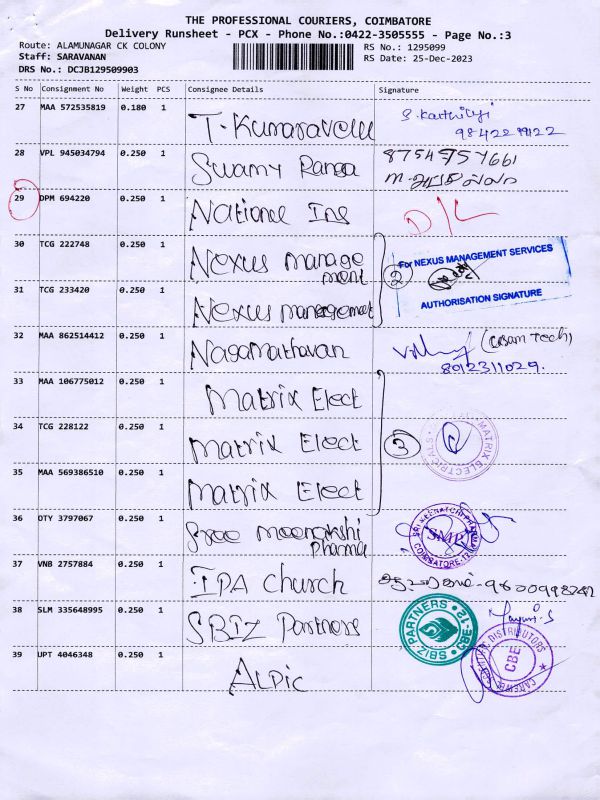 THE PROFESSIONAL COURIERS, COIMBATORE
Delivery Runsheet - PCX - Phone No.:0422-3505555 - Page No.:3
Route: ALAMUNAGAR CK COLONY
RS No.: 1295099
Staff: SARAVANAN
RS Date: 25-Dec-2023
DRS No.: DCJB129509903
S No Consignment No Weight PCS Consignee Details Signature
27 MAA 572535819 0.180 1 T. Kumaravelu S. Karthikeyi
28 VPL 945034794 0.250 1 Swamy Ranga
29 DPM 694220 0.250 1 National Ins D/L
30 TCG 222748 0.250 1 Nexus manage
ment
2
For NEXUS MANAGEMENT SERVICES
AUTHORISATION SIGNATURE
31 TCG 233420 0.250 1 Nexus management
32 MAA 862514412 0.250 1 Nagamathavan
8012311029.
33 MAA 106775012 0.250 1 Matrix Elect
34 TCG 228122 0.250 1 Matrix Elect 3
MATRIX ELECTRICALS
35 MAA 569386510 0.250 1 Matrix Elect
36 OTY 3797067 0.250 1 Sree meenakshi
pharma
SRI MEENATCHI PHARMA
SMP
COIMBATORE-12
37 VNB 2757884 0.250 1 IPA church
38 SLM 335648995 0.250 1 SBIZ Partners
SBIZ PARTNERS
CBE-12
39 UPT 4046348 0.250 1 ALPIC
DISTRIBUTORS
CBE